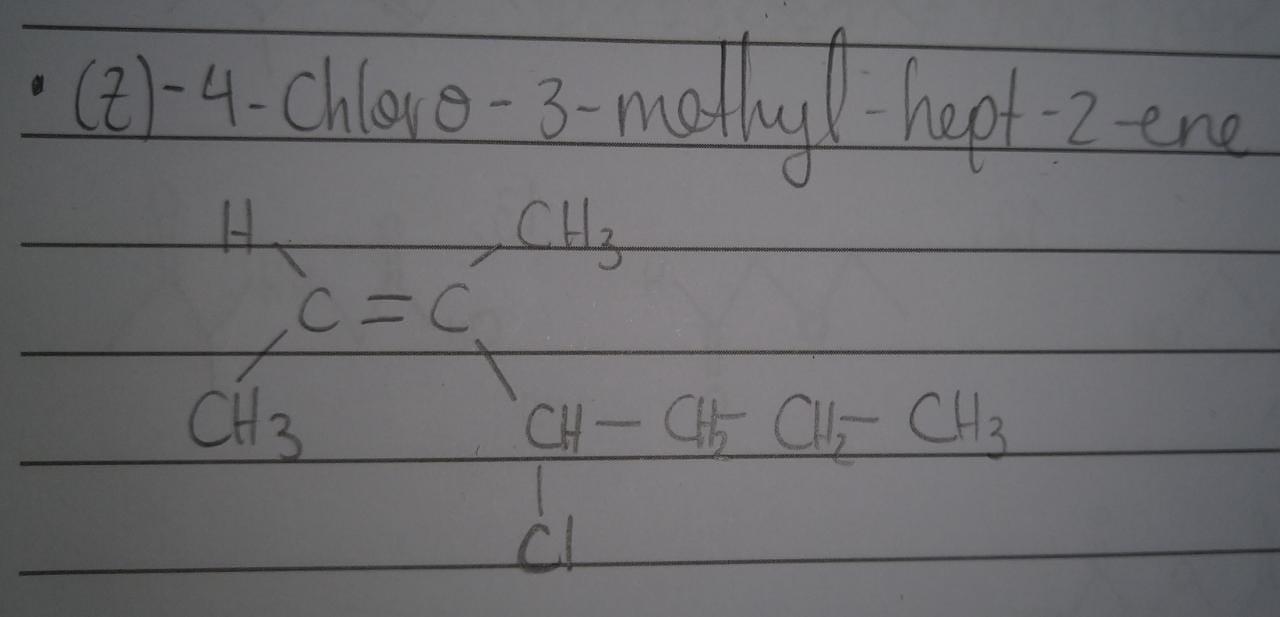 • (Z)-4-Chloro-3-methyl-hept-2-ene
H CH3
C = C
CH3 CH - CH2 - CH2 - CH3
Cl